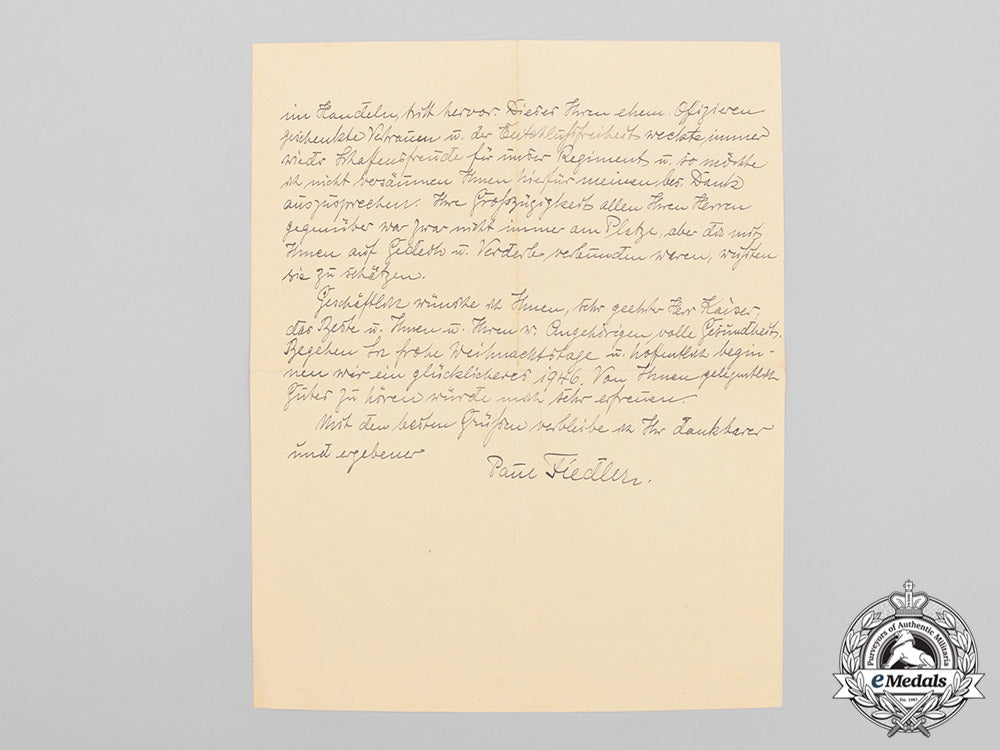 im Handeln, tritt hervor. Dieses Ihren ehem. Ofizieren
geschenkte Vertrauen u. der Entschlußfreiheit weckte immer
wieder Schaffensfreude für unser Regiment u. so möchte
ich nicht versäumen Ihnen hiefür meinen bes. Dank
auszusprechen. Ihre Großzügigkeit allen Ihren Herren
gegenüber war zwar nicht immer am Platze, aber die mit
Ihnen auf Gedeih u. Verderb verbunden waren, wußten
sie zu schätzen.
Geschäftlich wünsche ich Ihnen, sehr geehrter Herr Kaiser,
das Beste u. Ihnen u. Ihren w. Angehörigen volle Gesundheit.
Begehen Sie frohe Weihnachtstage u. hoffentlich begin-
nen wir ein glücklicheres 1946. Von Ihnen gelegentlich
Gutes zu hören würde mich sehr erfreuen.
Mit den besten Grüßen verbleibe ich Ihr dankbarer
und ergebener
Paul Fiedler.
Purveyors of Authentic Militaria
eMedals
Est. 1995